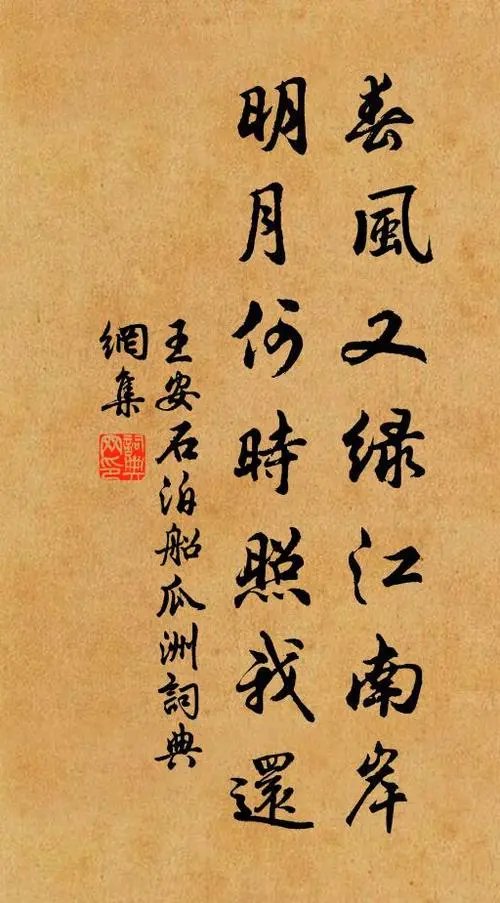 春風又緑江南岸
明月何時照我還
王安石泊船瓜洲詞典
網集
詞典
网印